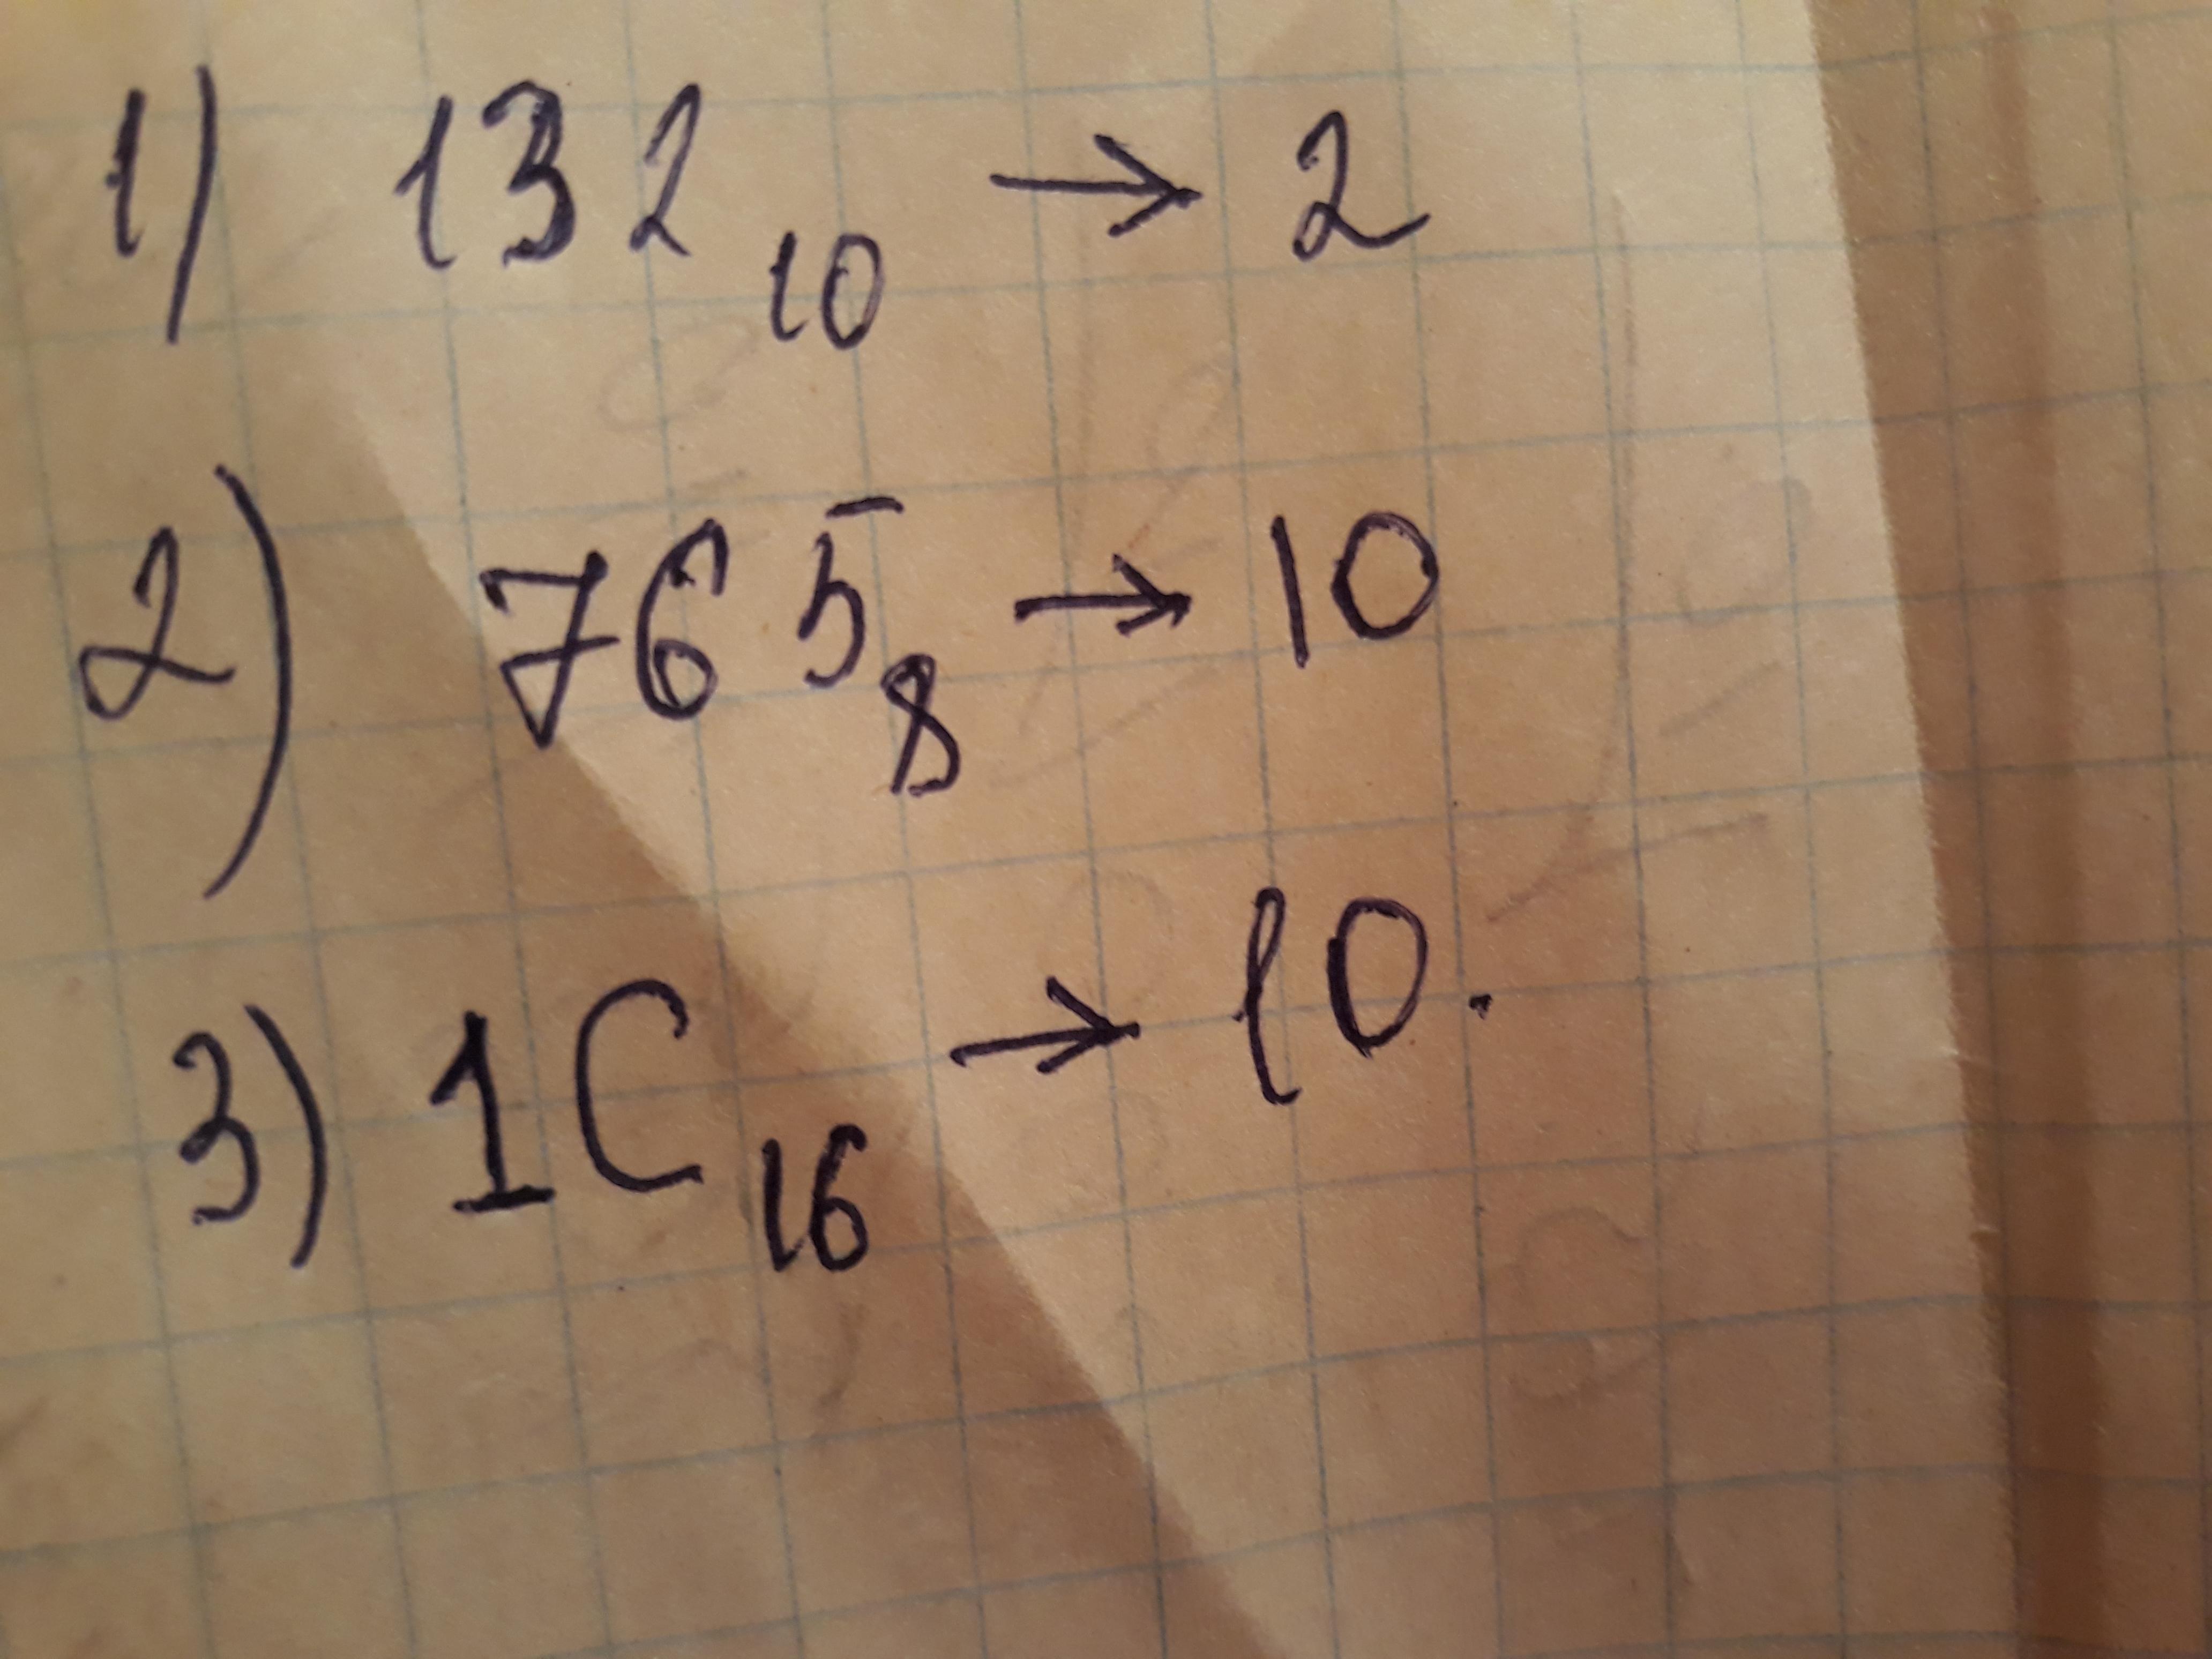 1) 132₁₀ → 2
2) 765₈ → 10
3) 1C₁₆ → 10.